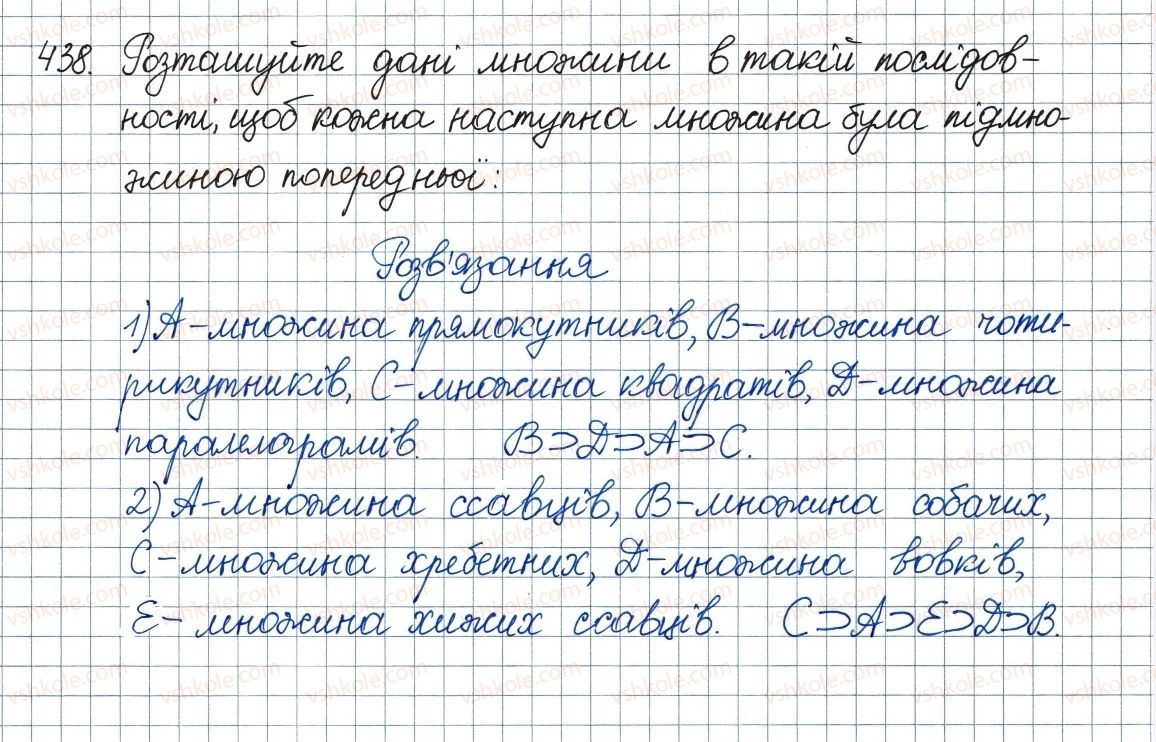 438. Розташуйте дані множини в такій послідов-
ності, щоб кожна наступна множина була підмно-
жиною попередньої:
Розв'язання
1) A-множина прямокутників, B-множина чоти-
рикутників, C-множина квадратів, D-множина
паралелограмів. B⊃D⊃A⊃C.
2) A-множина ссавців, B-множина собачих,
C-множина хребетних, D-множина вовків,
E-множина хижих ссавців. C⊃A⊃E⊃D⊃B.
vshkole.com